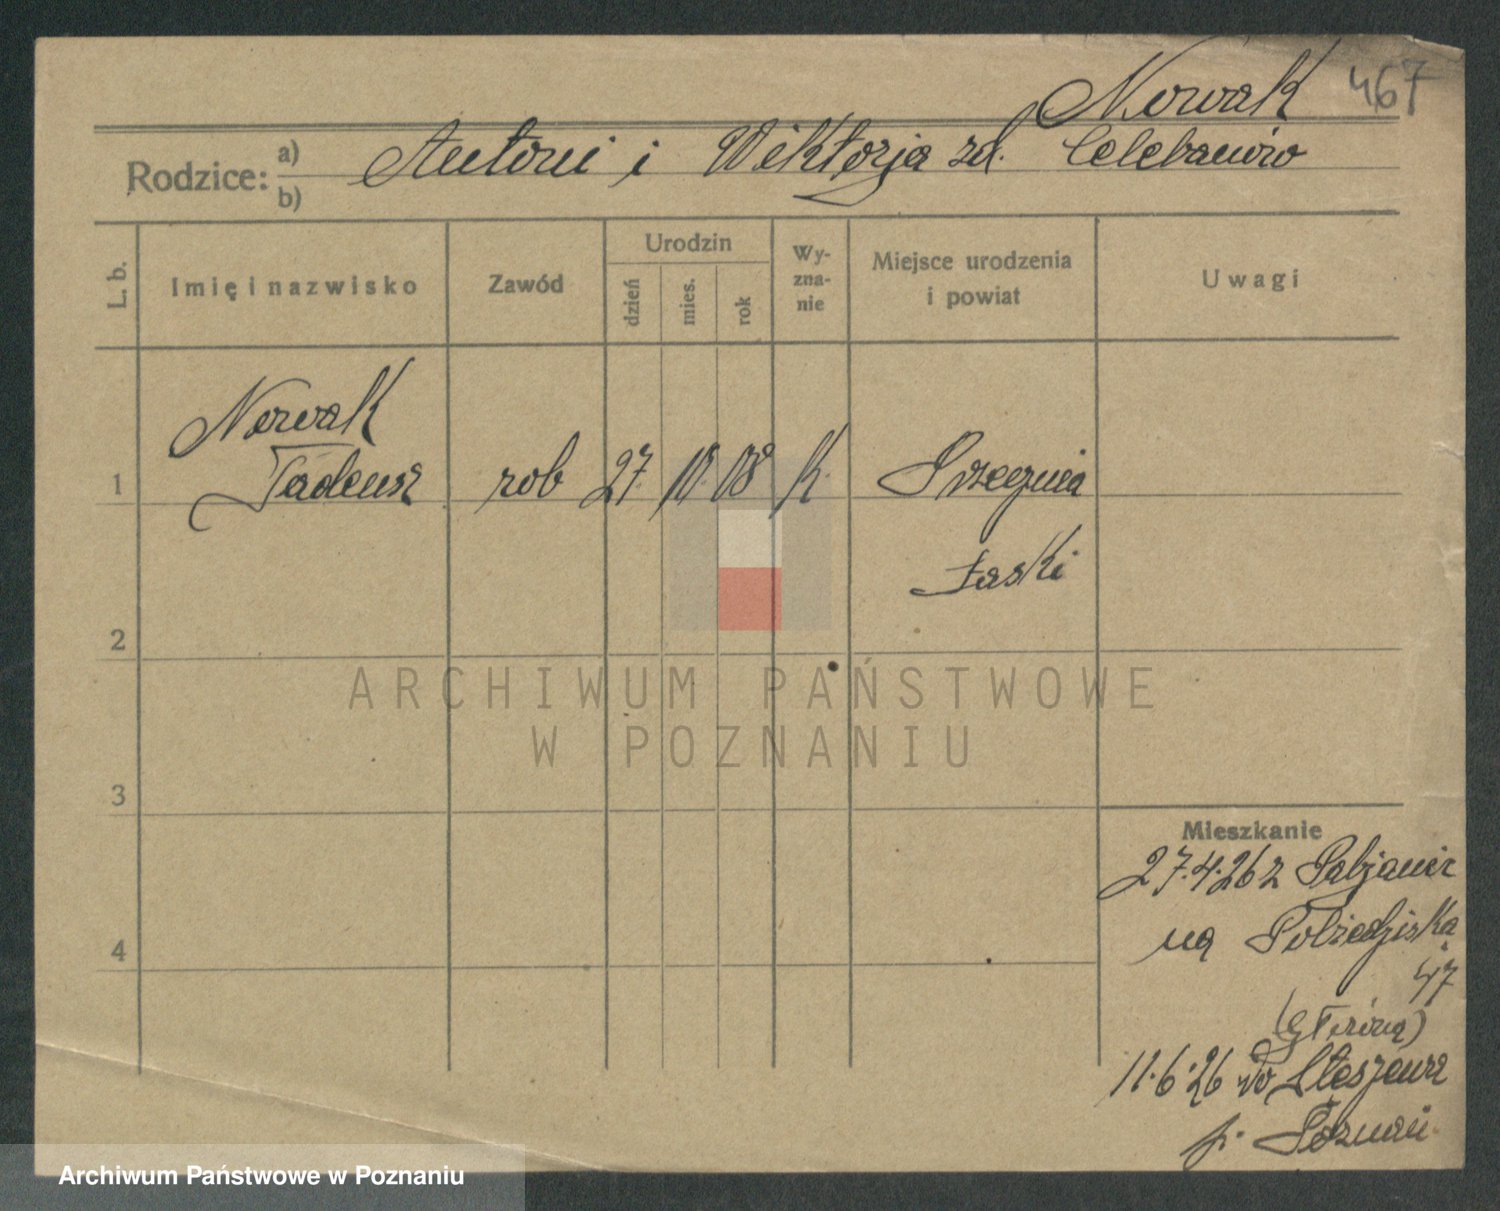 Nowak 467
Rodzice: a) b) Antoni i Wiktorja zd.
L. b.
Imię i nazwisko
Zawód
Urodzin
dzień
mies.
rok
Wy-
zna-
nie
Miejsce urodzenia
i powiat
Uwagi
Nowak
1 Tadeusz rob 27. 10. 08 K.
Łaski
2
3
4
Mieszkanie
27.4.26 z Pabjanic
na
47
(Główna)
11.6.26 do Stęszewa
p. Poznań.
ARCHIWUM PAŃSTWOWE
W POZNANIU
Archiwum Państwowe w Poznaniu